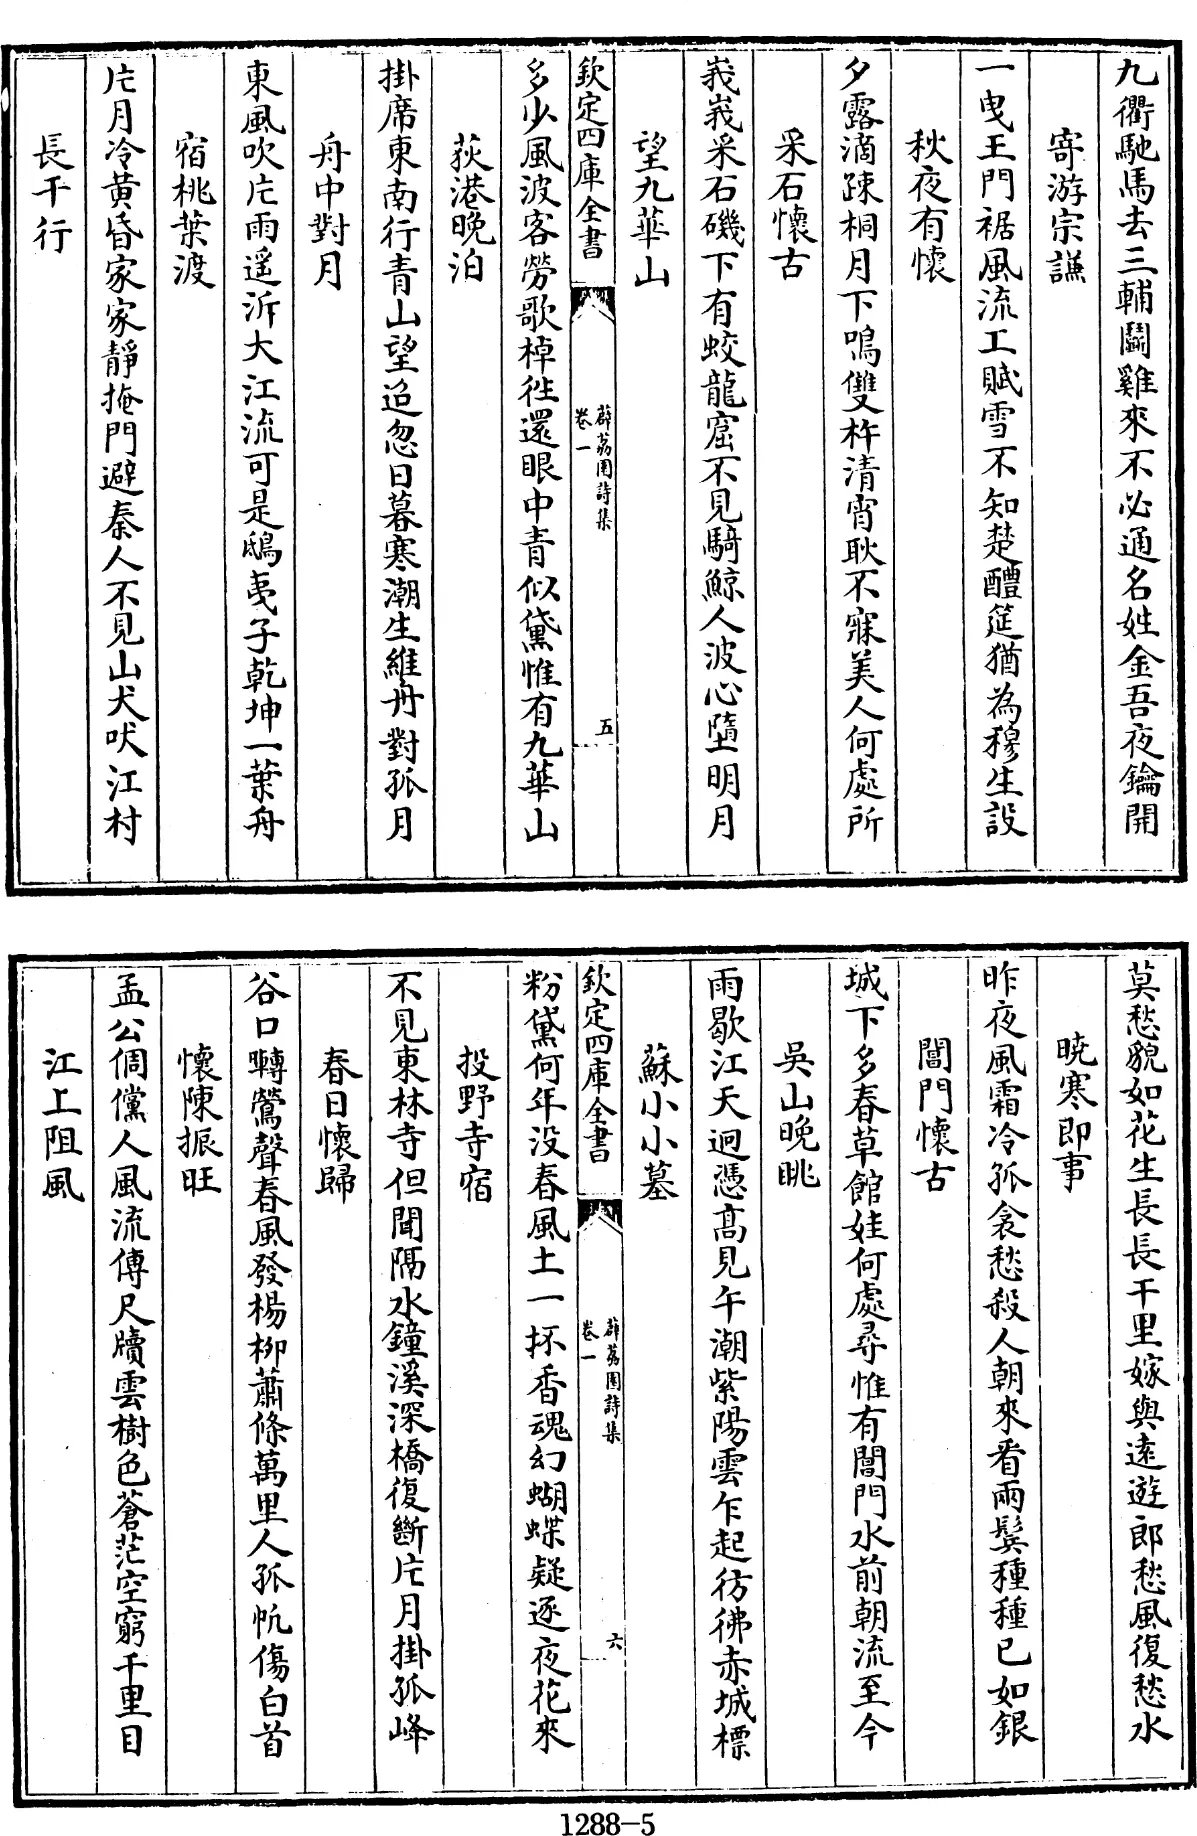 九衢馳馬去三輔鬭雞來不必通名姓金吾夜鑰開
寄游宗謙
一曳王門裾風流工賦雪不知楚醴筵猶為穆生設
秋夜有懷
夕露滴疎桐月下鳴雙杵清宵耿不寐美人何處所
采石懷古
峩峩采石磯下有蛟龍窟不見騎鯨人波心墮明月
望九華山
欽定四庫全書
薜荔園詩集
卷一
五
多少風波客勞歌棹徃還眼中青似黛惟有九華山
荻港晚泊
掛席東南行青山望迢忽日暮寒潮生維舟對孤月
舟中對月
東風吹片雨遥泝大江流可是鴟夷子乾坤一葉舟
宿桃葉渡
片月冷黄昏家家靜掩門避秦人不見山犬吠江村
長干行
莫愁貌如花生長長干里嫁與遠遊郎愁風復愁水
曉寒即事
昨夜風霜冷孤衾愁殺人朝來看兩鬂種種已如銀
閶門懷古
城下多春草館娃何處尋惟有閶門水前朝流至今
吳山晚眺
雨歇江天迥憑髙見午潮紫陽雲乍起彷彿赤城標
蘇小小墓
欽定四庫全書
薜荔園詩集
卷一
六
粉黛何年没春風土一抔香魂幻蝴蝶疑逐夜花來
投野寺宿
不見東林寺但聞隔水鐘溪深橋復斷片月掛孤峰
春日懷歸
谷口囀鶯聲春風發楊柳蕭條萬里人孤忱傷白首
懷陳振旺
孟公倜儻人風流傳尺牘雲樹色蒼茫空窮千里目
江上阻風
1288-5